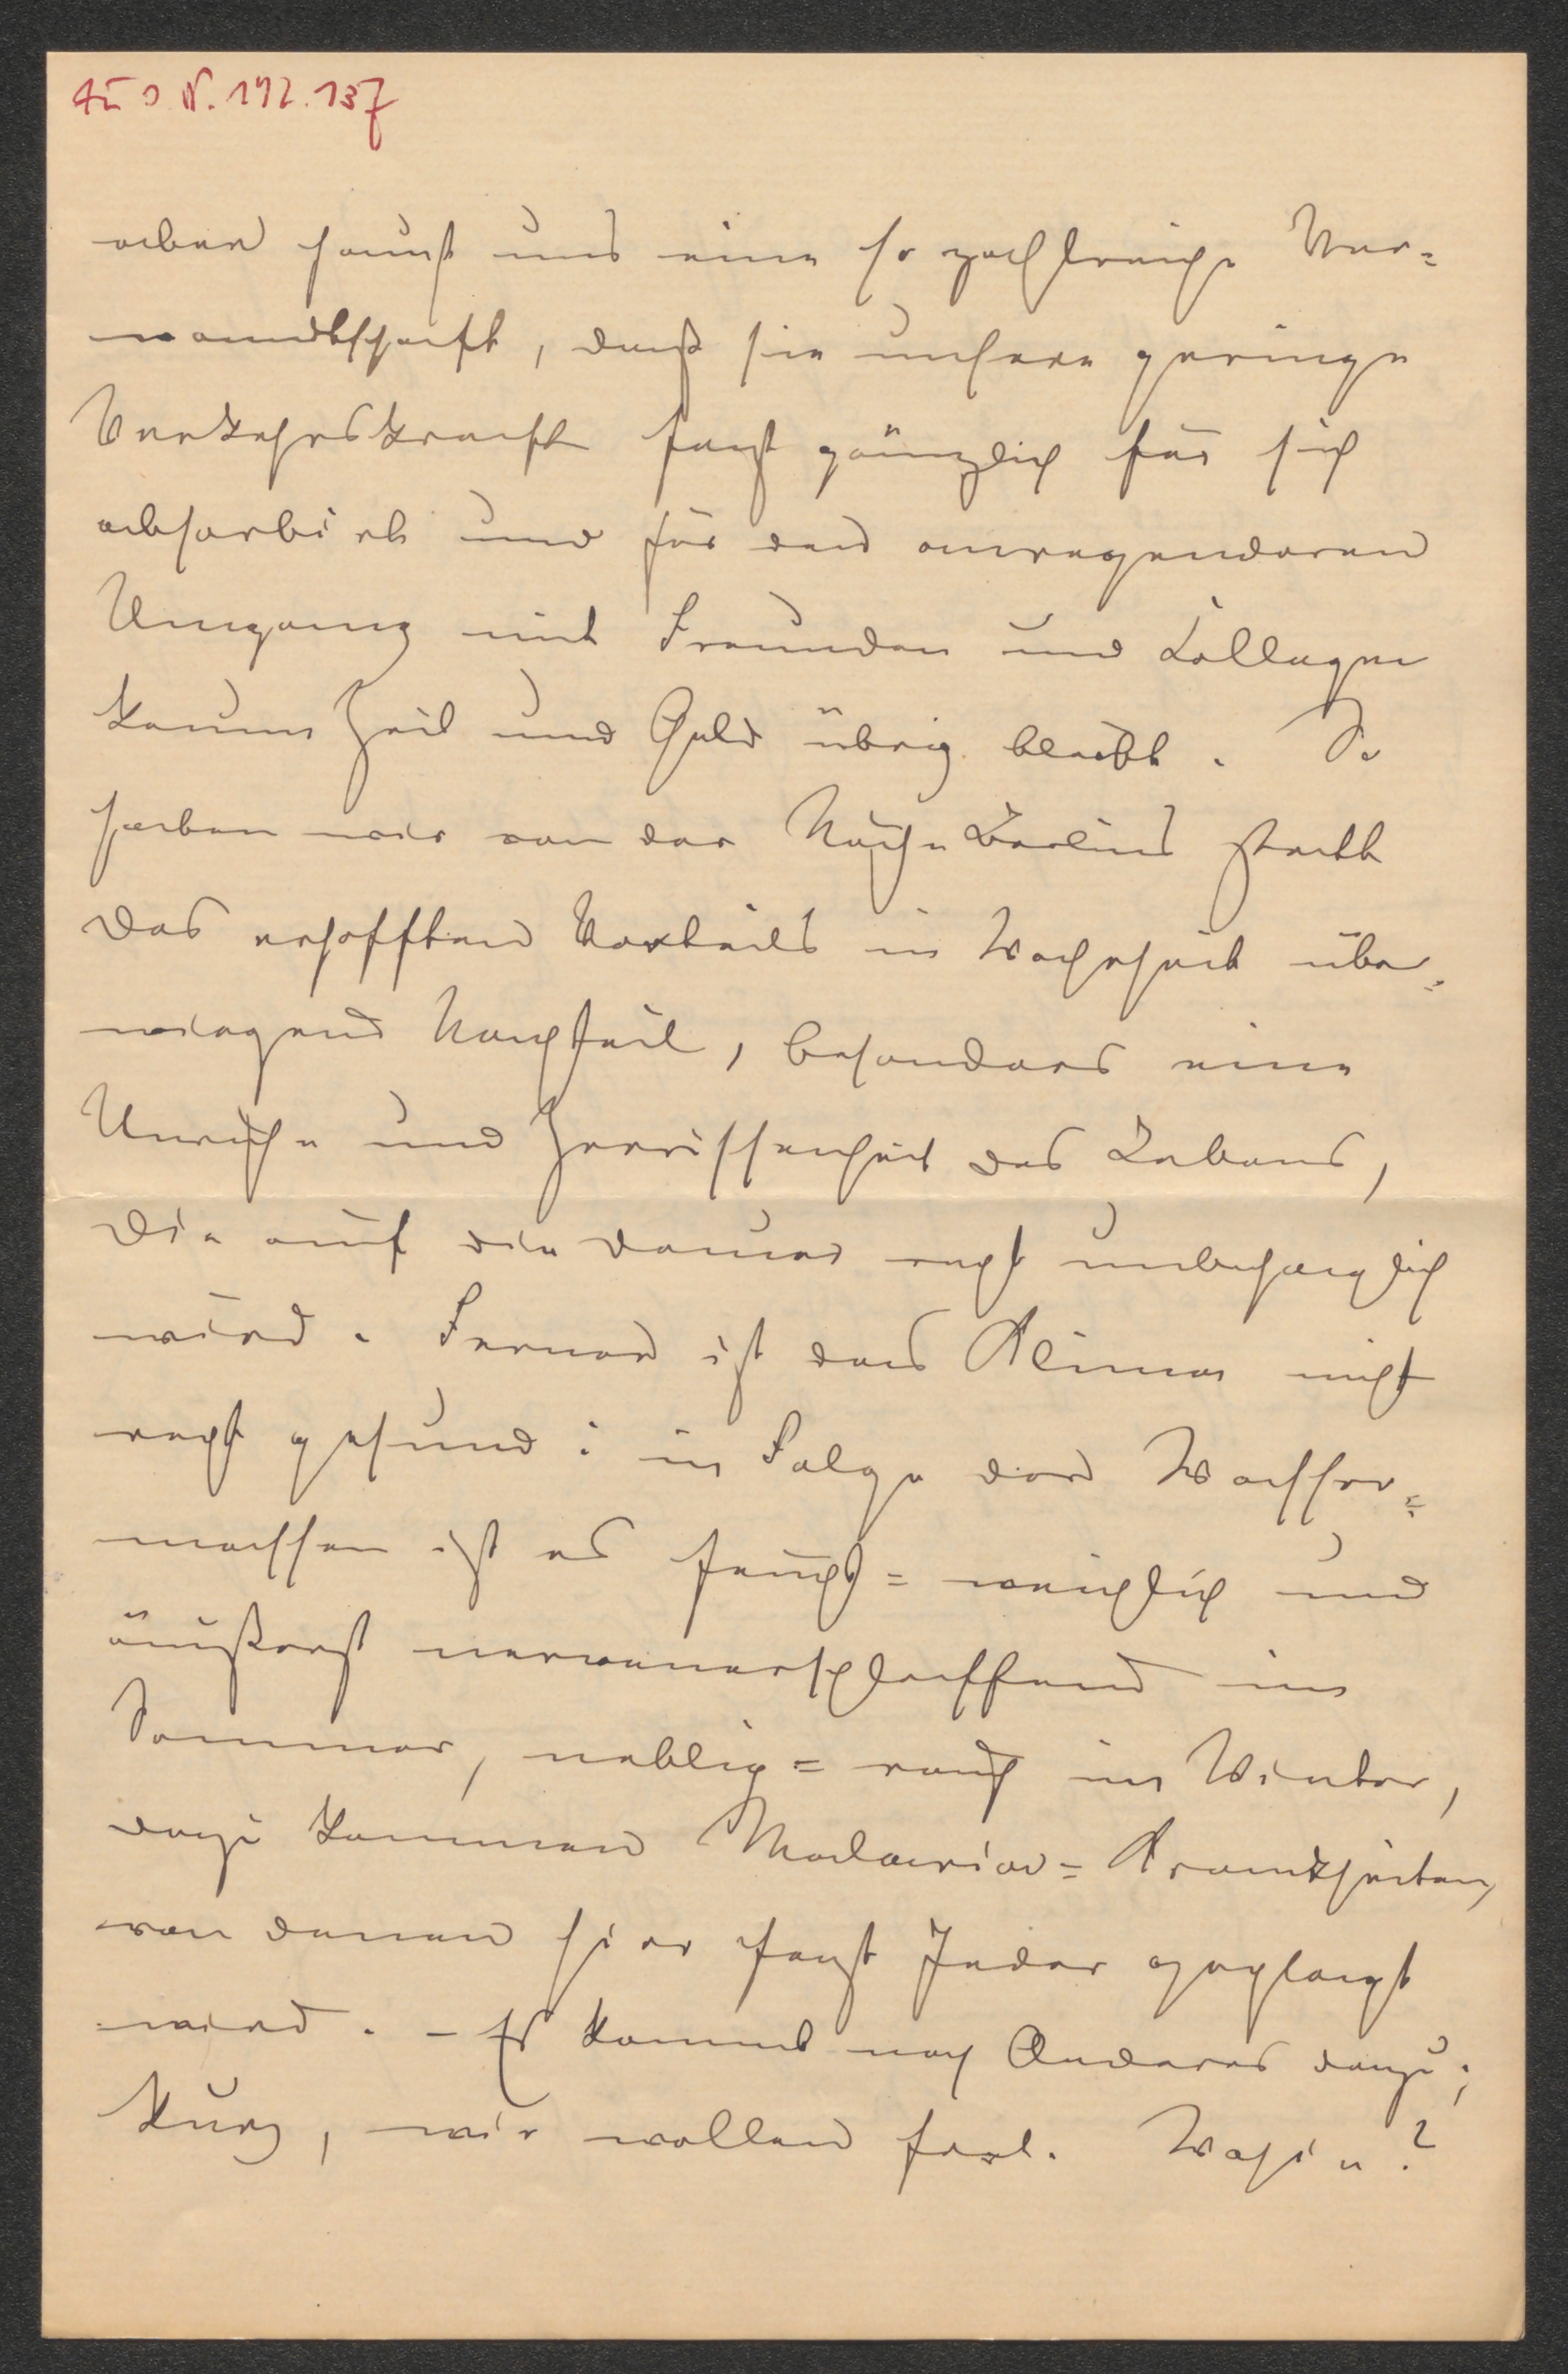 N. 192.137
aber haust uns eine so zahlreiche Ver=
wandtschaft, daß sie unsere geringe
Verkehrskraft fast gänzlich für sich
absorbirt und für den anregenderen
Umgang mit Freunden und Collegen
kaum Zeit und Geld übrig bleibt. So
haben wir von der Nähe Berlins statt
des erhofften Vorteils in Wahrheit über=
wiegend Nachteil, besonders eine
Unruhe und Zerrissenheit des Lebens,
die auf die Dauer recht unbehaglich
wird. Ferner ist das Klima nicht
recht gesund: in Folge der Wasser=
massen ist es feucht=weichlich und
äußerst nervenerschlaffend im
Sommer, neblig=rauh im Winter,
dazu kommen Malaria=Krankheiten,
von denen hier fast Jeder geplagt
wird. – Es kommt noch Anderes dazu;
kurz, wir wollen fort. Wohin?